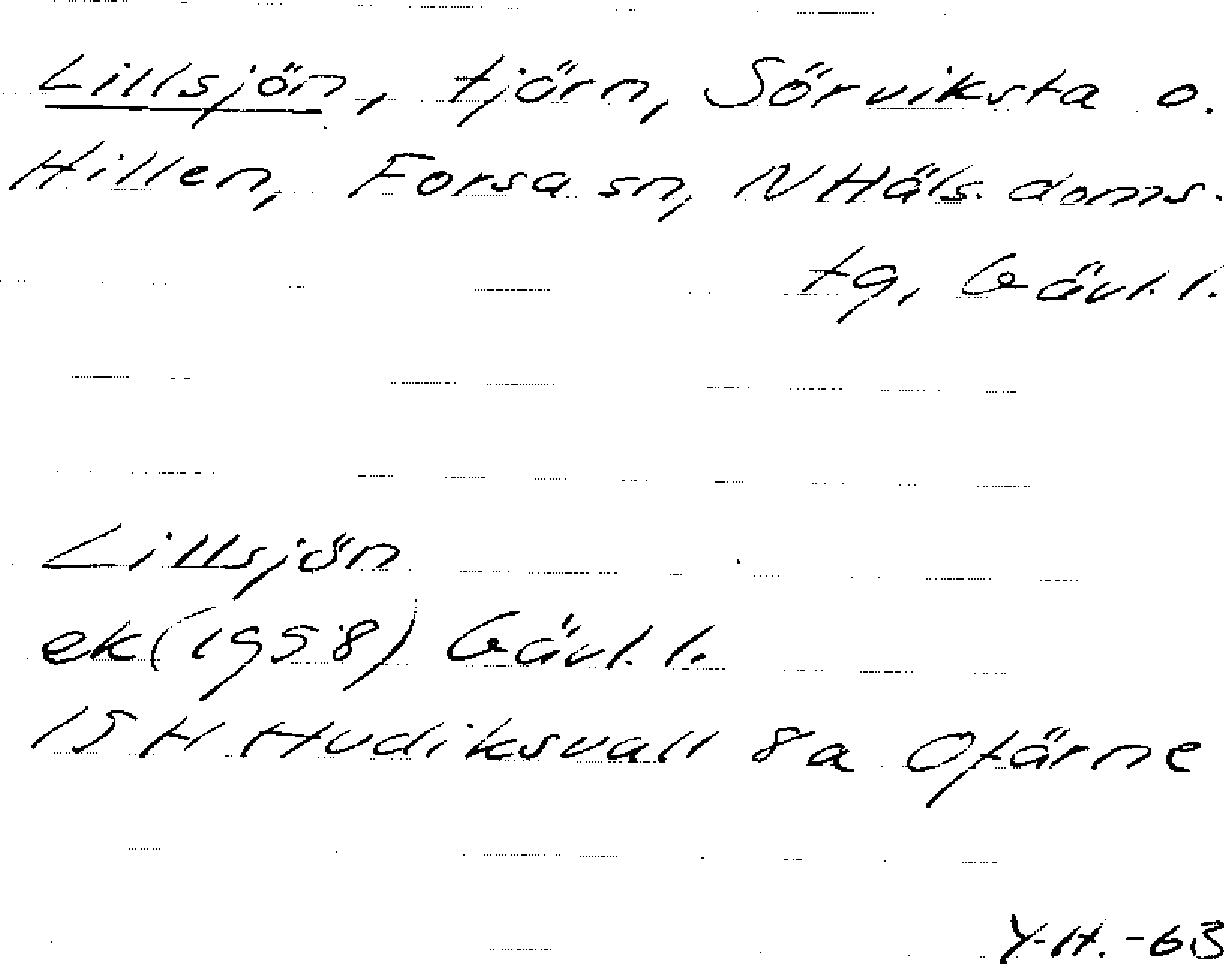 Lillsjön, tjärn, Sörviksta o.
Hillen, Forsa sn, N Häls. doms.
tg, Gävl. l.
Lillsjön
ek (1958) Gävl. l.
15 H Hudiksvall 8a Ofärne
Y.H. -63